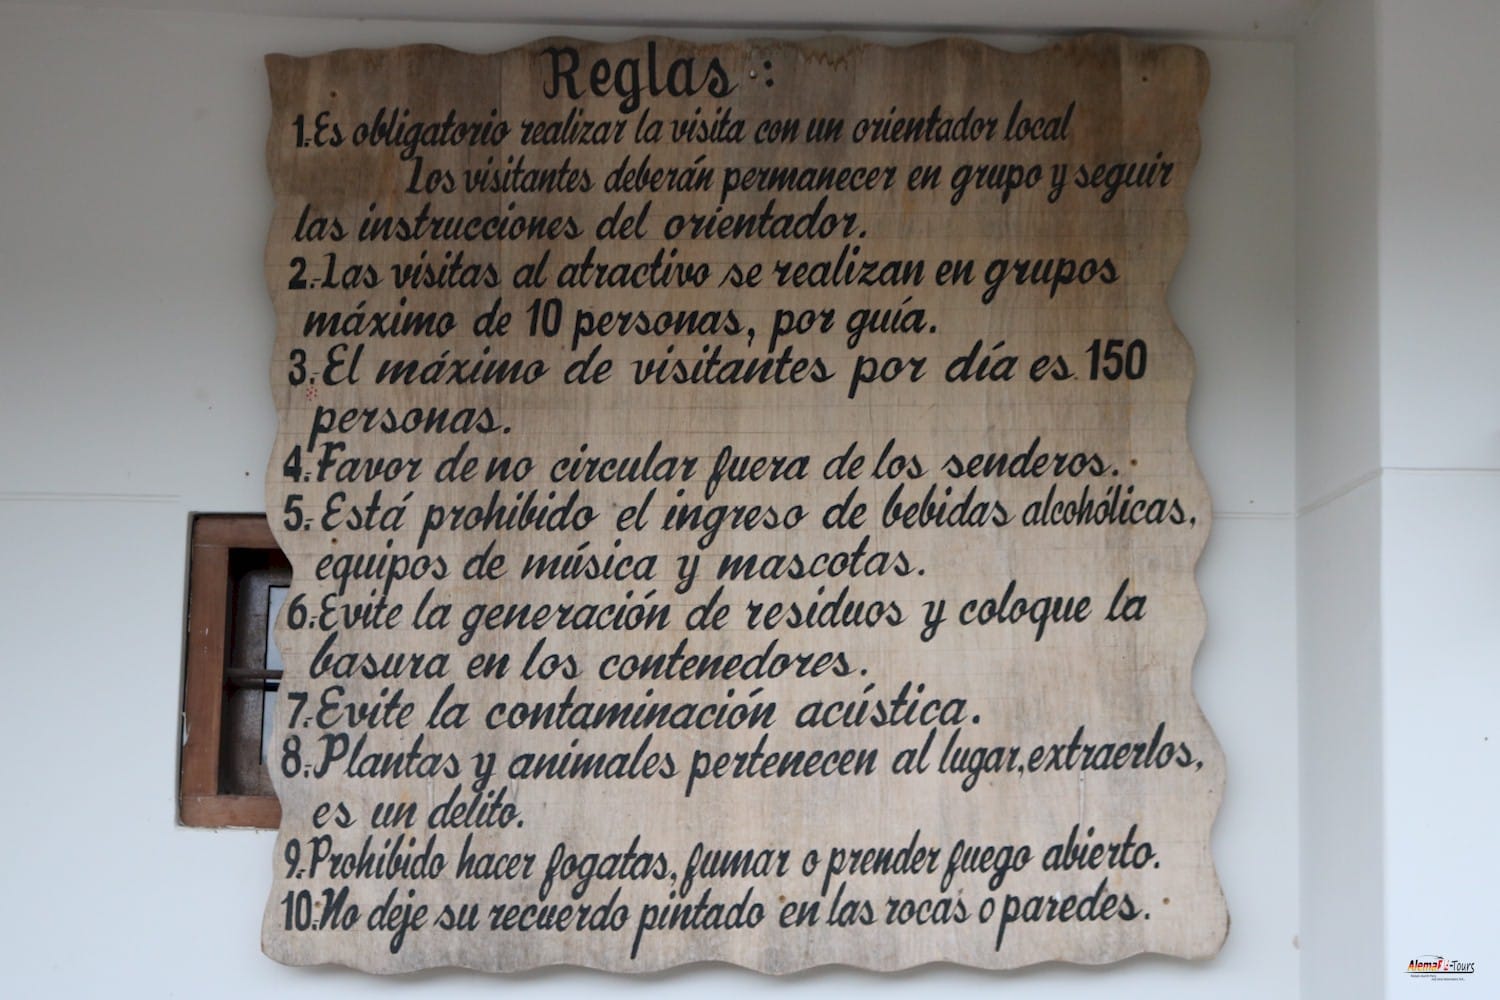 Reglas :
1.-Es obligatorio realizar la visita con un orientador local
Los visitantes deberán permanecer en grupo y seguir
las instrucciones del orientador.
2.-Las visitas al atractivo se realizan en grupos
máximo de 10 personas, por guía.
3.-El máximo de visitantes por día es 150
personas.
4.-Favor de no circular fuera de los senderos.
5.-Está prohibido el ingreso de bebidas alcohólicas,
equipos de música y mascotas.
6.-Evite la generación de residuos y coloque la
basura en los contenedores.
7.-Evite la contaminación acústica.
8.-Plantas y animales pertenecen al lugar,extraerlos,
es un delito.
9.-Prohibido hacer fogatas, fumar o prender fuego abierto.
10.-No deje su recuerdo pintado en las rocas o paredes.
-Tours